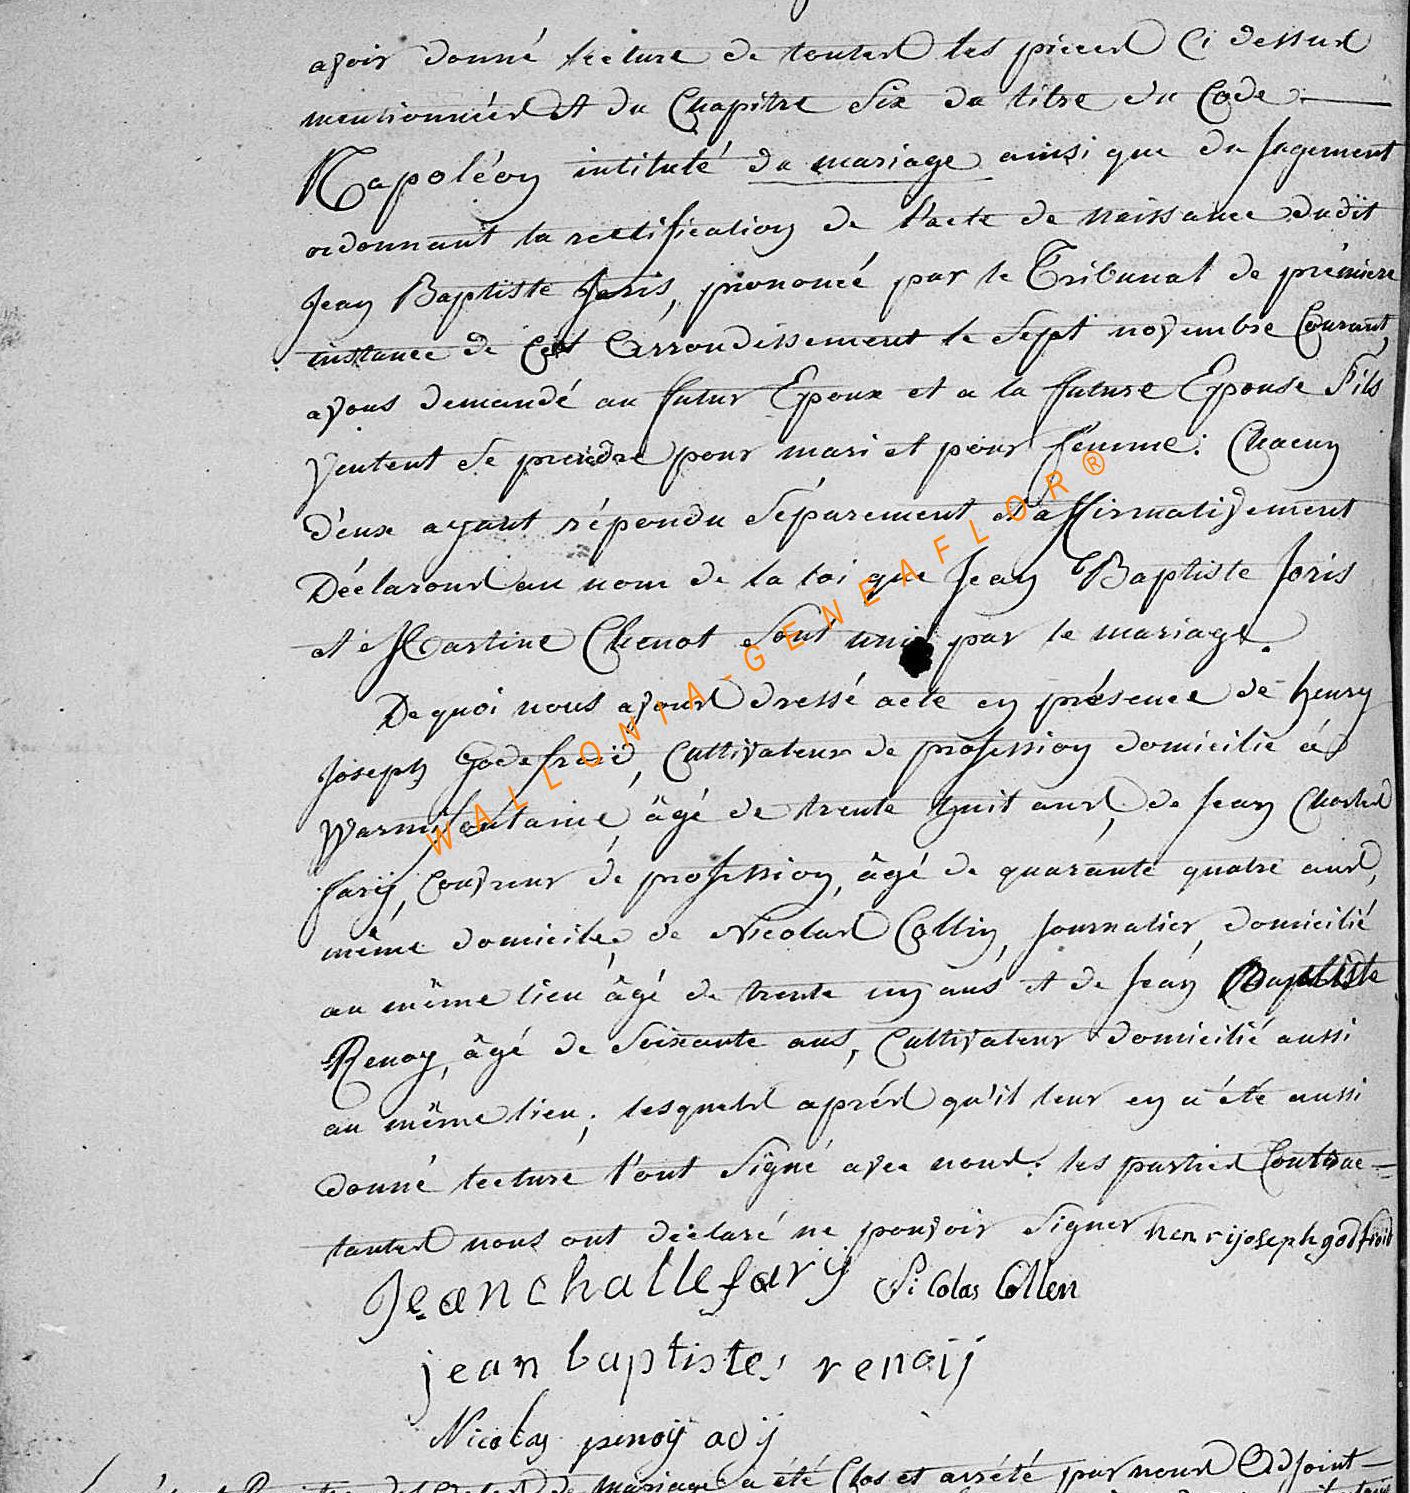 avoir donné lecture de toutes les pièces Ci dessus
mentionnées et du Chapitre Six du titre du Code
Napoléon intitulé du mariage ainsi que du Jugement
ordonnant la rectification de l'acte de naissance dudit
Jean Baptiste Joris, prononcé par le Tribunal de prémiere
instance de Cet Arrondissement le Sept novembre Courant,
avons demandé au futur Epoux et a la future Epouse S'ils
veulent se prendre pour mari et pour femme: Chacun
d'eux ayant répondu Séparement et affirmativement
Déclarons au nom de la loi que Jean Baptiste Joris
et Martine Chenot Sont unis par le mariage.
De quoi nous avons dressé acte en présence de henry
Joseph Godefroid, Cultivateur de profession domicilié à
Warmifontaine, âgé de trente huit ans, de Jean Charles
farÿ, Couvreur de profession, âgé de quarante quatre ans,
même domicile, de Nicolas Collin, Journalier, domicilié
au même lieu âgé de trente un ans et de Jean Baptiste
Renoy, âgé de Soixante ans, Cultivateur domicilié aussi
au même lieu; lesquels après qu'il leur en a été aussi
donné lecture l'ont Signé avec nous. les parties Contrac-
tantes nous ont déclaré ne pouvoir Signer henrijosephgodfroid
Jean challe farij Nicolas Collen
jean baptiste renoij
Nicolas penoÿ adj
de mariage a été Clos et arrêté par nous Adjoint
WALLONIA-GENEAFLOR®